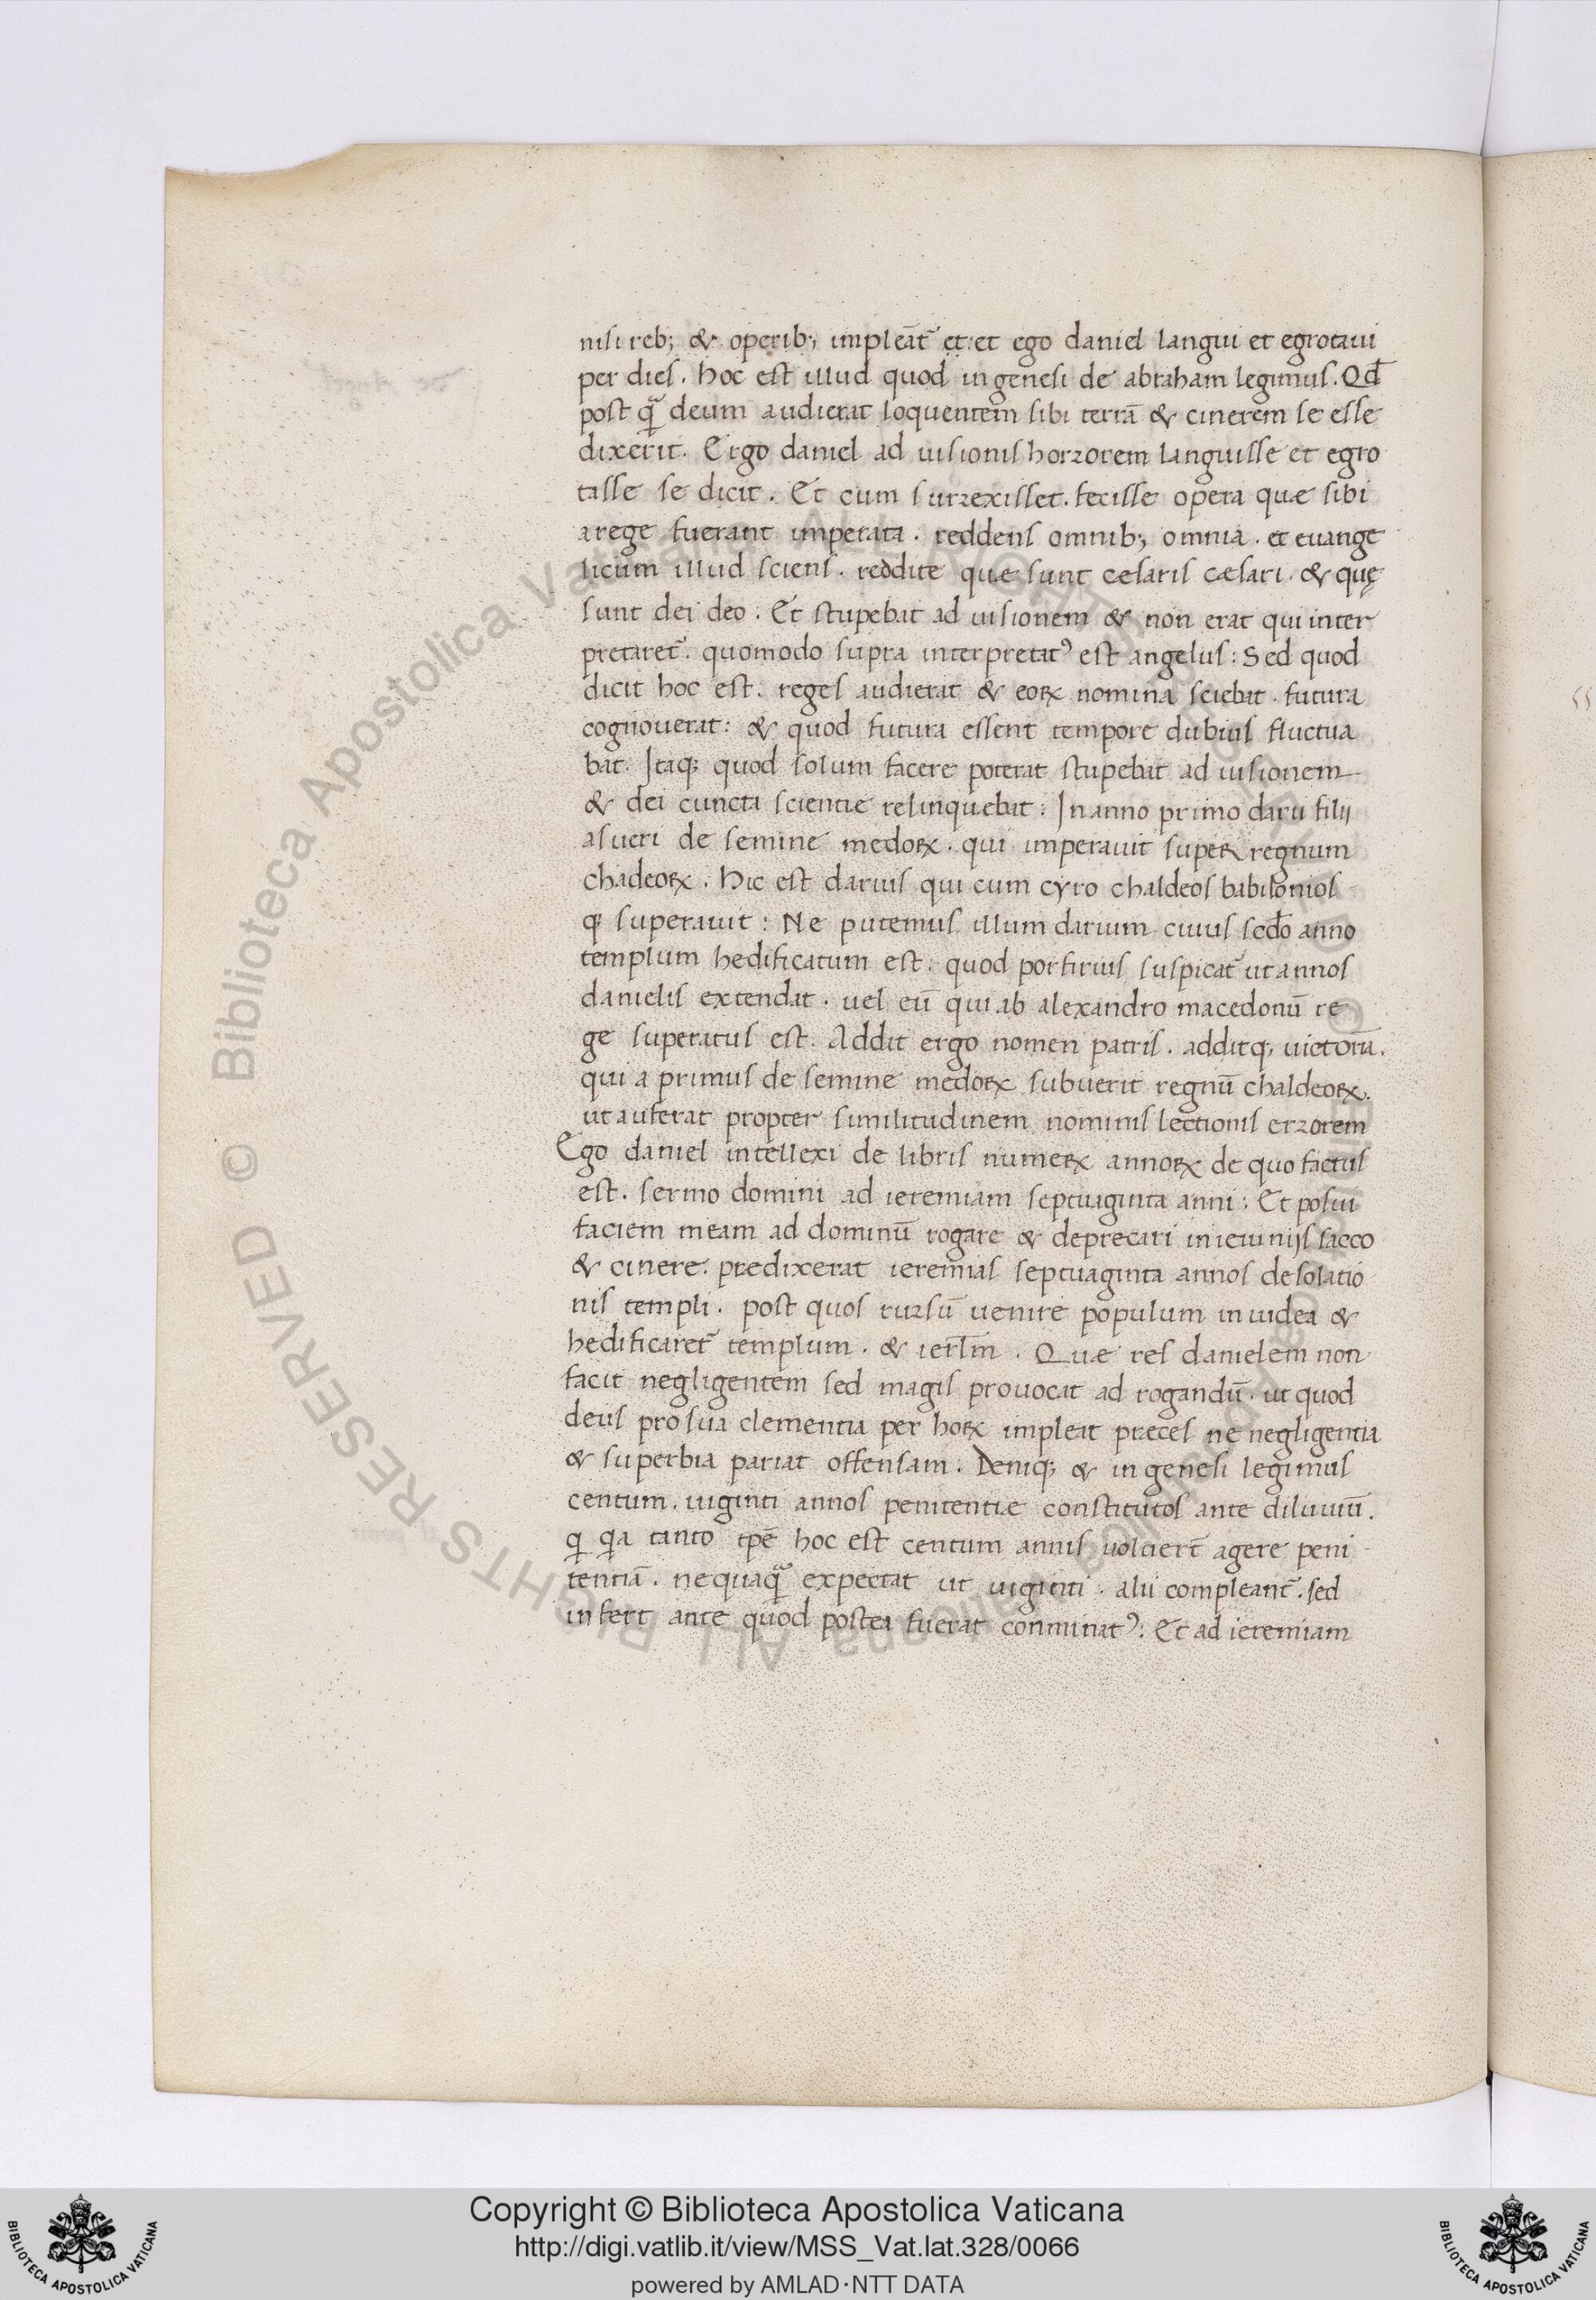 nisi reb; & operib; impleāt᷑ et: et ego daniel langui et egrotaui
per dies. hoc est illud quod in genesi de abraham legimus. Qđ
post q̄ deum audierat loquentem sibi terrā & cinerem se esse
dixerit. Ergo daniel ad uisionis horrorem languisse et egro
tasse se dicit. Et cum surrexisset. fecisse opera quæ sibi
a rege fuerant imperata. reddens omnib; omnia. et euange
licum illud sciens. reddite quæ sunt cæsaris cæsari. & quę
sunt dei deo. Et stupebat ad uisionem & non erat qui inter
pretaret᷑. quomodo supra interpretatꝰ est angelus: Sed quod
dicit hoc est. reges audierat & eoꝝ nomina sciebat. futura
cognouerat: & quod futura essent tempore dubius fluctua
bat. Itaq; quod solum facere poterat stupebat ad uisionem
& dei cuncta scientie relinquebat: In anno primo darii filij
asueri de semine medoꝝ. qui imperauit super regnum
chadeoꝝ. Hic est darius qui cum cyro chaldeos babilonios
q; superauit: Ne putemus illum darium cuius scđo anno
templum hedificatum est. quod porfirius suspicat᷑ ut annos
danielis extendat. uel eū qui ab alexandro macedonū re
ge superatus est. Addit ergo nomen patris. additq; uictoriā.
qui a primus de semine medoꝝ subuerit regnū chaldeoꝝ.
ut auferat propter similitudinem nominis lectionis errorem
Ego daniel intellexi de libris numeꝝ annoꝝ de quo factus
est. sermo domini ad ieremiam septuaginta anni: Et posui
faciem meam ad dominū rogare & deprecari in ieiunijs sacco
& cinere. predixerat ieremias septuaginta annos desolatio
nis templi. post quos rursū uenire populum in iudea &
hedificaret᷑ templum. & ierl̄m. Quæ res danielem non
facit negligentem sed magis prouocat ad rogandū. ut quod
deus pro sua clementia per hoꝝ impleat preces ne negligentia
& superbia pariat offensam. Deniq; & in genesi legimus
centum. uiginti annos penitentiæ constitutos ante diluuiū.
q̄ q̄a tanto tp̄e hoc est centum annis uolueret᷑ agere peni
tentiā. nequaq̄ expectat ut uiginti. alii compleant᷑. sed
infert ante quod postea fuerat conminatꝰ: Et ad ieremiam
© Biblioteca Apostolica Vaticana ALL RIGHTS RESERVED
Copyright © Biblioteca Apostolica Vaticana
http://digi.vatlib.it/view/MSS_Vat.lat.328/0066
powered by AMLAD·NTT DATA
BIBLIOTECA APOSTOLICA VATICANA
BIBLIOTECA APOSTOLICA VATICANA